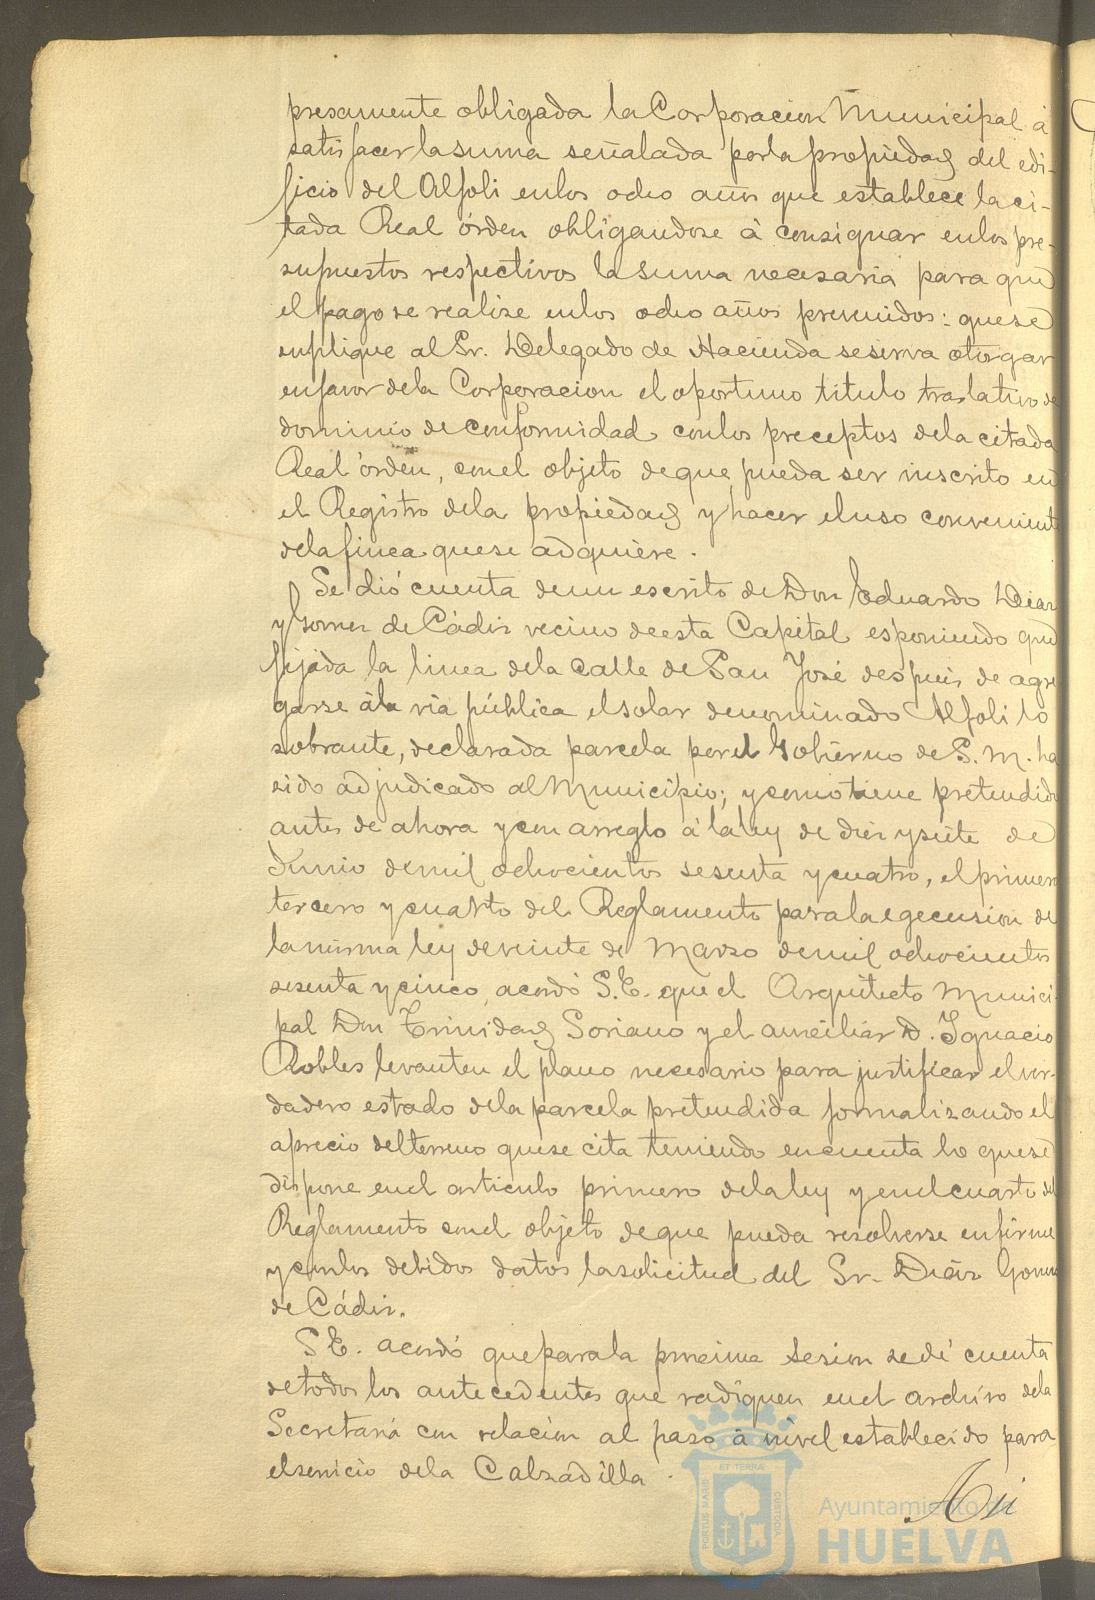 presamente obligada la Corporacion Municipal á
satisfacer la suma señalada por la propiedad del edi-
ficio del Alfoli en los ocho años que establece la ci-
tada Real órden obligandose á consignar en los pre-
supuestos respectivos la suma necesaria para que
el pago se realize en los ocho años prevenidos: que se
suplique al Sr. Delegado de Hacienda se sirva otorgar
en favor de la Corporacion el oportuno titulo traslativo de
dominio de conformidad con los preceptos de la citada
Real órden, con el objeto de que pueda ser inscrito en
el Registro de la propiedad y hacer el uso conveniente
de la finca que se adquiere.
Se dió cuenta de un escrito de Don Eduardo Diaz
y Gomez de Cádiz vecino de esta Capital esponiendo que
fijada la linea de la calle de San José despues de agre
garse á la via pública el solar denominado Alfoli lo
sobrante, declarada parcela por el Gobierno de S. M. ha
sido adjudicado al Municipio; y como tiene pretendido
antes de ahora y con arreglo á la ley de diez y siete de
Junio de mil ochocientos sesenta y cuatro, el primero
tercero y cuarto del Reglamento para la egecusion de
la misma ley de veinte de Marzo de mil ochocientos
sesenta y cinco, acordó S.E. que el Arquitecto Munici-
pal Don Trinidad Soriano y el auxiliar D. Ignacio
Robles levanten el plano necesario para justificar el ver-
dadero estado de la parcela pretendida formalizando el
aprecio del terreno que se cita teniendo en cuenta lo que se
dispone en el articulo primero de la ley y en el cuarto del
Reglamento con el objeto de que pueda resolverse en firme
y con los debidos datos la solicitud del Sr. Diaz Gomez
de Cádiz.
S.E. acordó que para la proxima sesion se dé cuenta
de todos los antecedentes que radiquen en el archivo de la
Secretaria con relacion al paso á nivel establecido para
el servicio de la Calzadilla.
Asi
PORTUS MARIS ET TERRÆ CUSTODIA
Ayuntamiento de
HUELVA